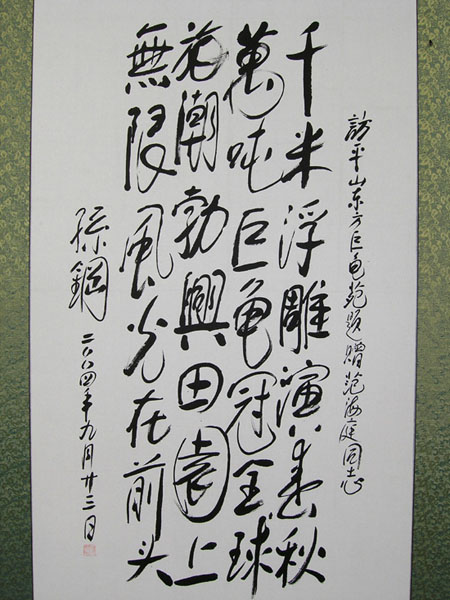 訪平山东方巨龟苑题赠范海庭同志
千米浮雕演春秋
萬吨巨龟冠全球
旅潮勃興田園上
無限風光在前头
孫鋼
二〇〇四年九月廿三日